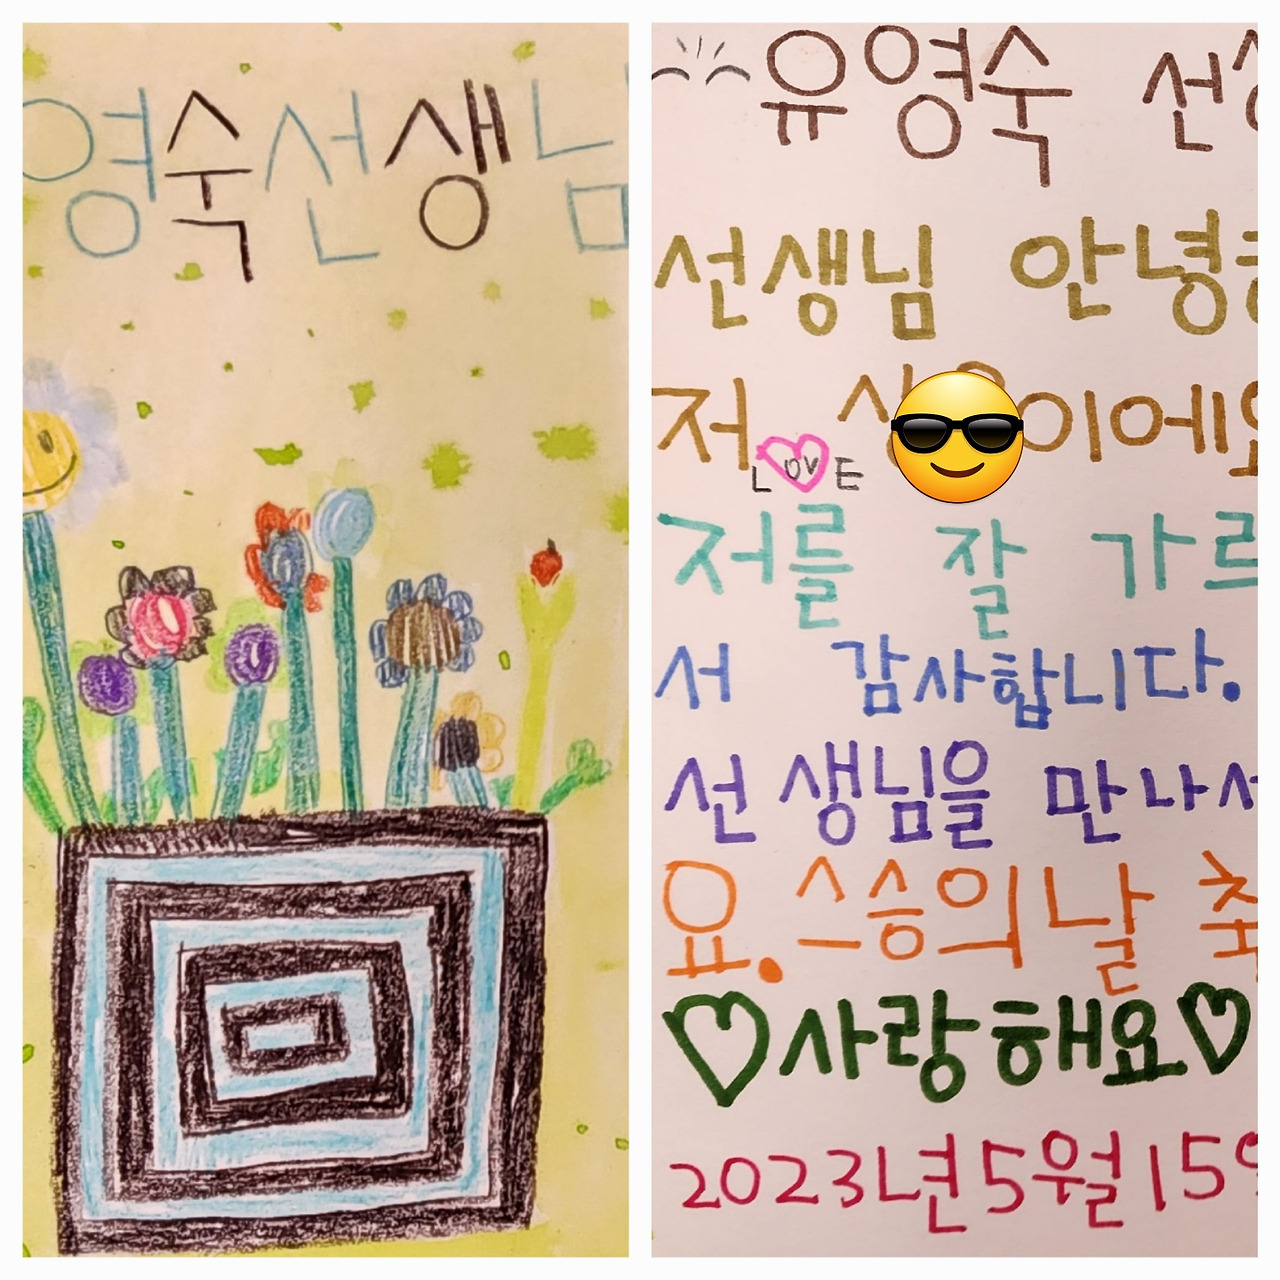 영숙선생님
유영숙 선생
선생님 안녕하
저 이에요
LOVE
저를 잘 가르
서 감사합니다.
선생님을 만나서
요. 스승의 날 축
♡사랑해요♡
2023년 5월 15일